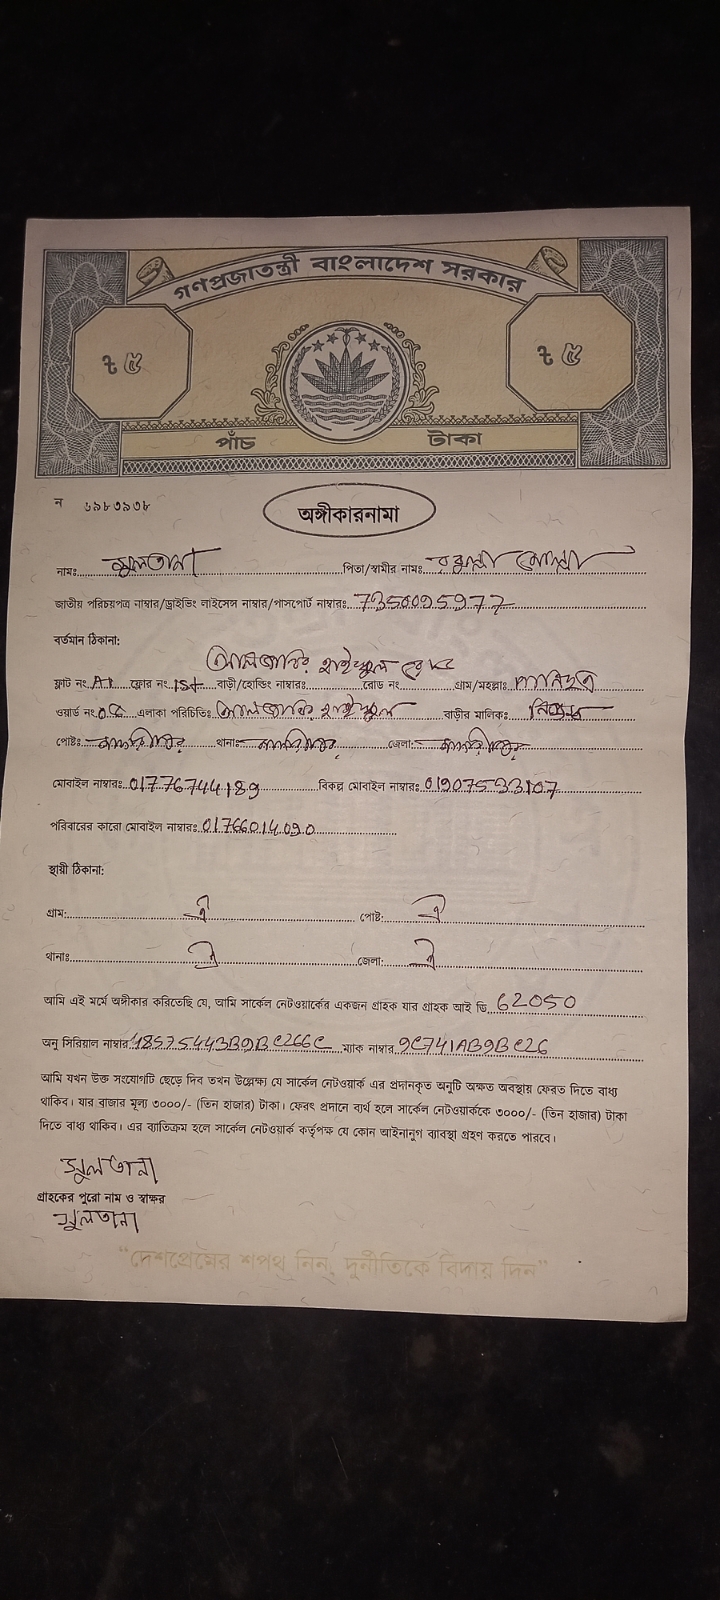 গণপ্রজাতন্ত্রী বাংলাদেশ সরকার
৳ ৫ ৳ ৫
পাঁচ টাকা
ন ৬৯৮৩৯৩৮
অঙ্গীকারনামা
নামঃ সুলতানা পিতা/স্বামীর নামঃ মোল্লা
জাতীয় পরিচয়পত্র নাম্বার/ড্রাইভিং লাইসেন্স নাম্বার/পাসপোর্ট নাম্বারঃ 7350095977
বর্তমান ঠিকানা:
হাইস্কুল রোড
ফ্লাট নং A1 ফ্লোর নং 1st বাড়ী/হোল্ডিং নাম্বারঃ রোড নং গ্রাম/মহল্লাঃ
ওয়ার্ড নং 06 এলাকা পরিচিতিঃ হাইস্কুল বাড়ীর মালিকঃ নিজস্ব
পোষ্টঃ থানাঃ জেলা:
মোবাইল নাম্বারঃ 01776744189 বিকল্প মোবাইল নাম্বারঃ 01907533107
পরিবারের কারো মোবাইল নাম্বারঃ 01766014090
স্থায়ী ঠিকানা:
গ্রাম: ঐ পোষ্ট: ঐ
থানাঃ ঐ জেলা: ঐ
আমি এই মর্মে অঙ্গীকার করিতেছি যে, আমি সার্কেল নেটওয়ার্কের একজন গ্রাহক যার গ্রাহক আই ডি 62050
অনু সিরিয়াল নাম্বার 48575443B9BC266C ম্যাক নাম্বার 9C741AB9BC26
আমি যখন উক্ত সংযোগটি ছেড়ে দিব তখন উল্লেক্ষ্য যে সার্কেল নেটওয়ার্ক এর প্রদানকৃত অনুটি অক্ষত অবস্থায় ফেরত দিতে বাধ্য
থাকিব। যার বাজার মূল্য ৩০০০/- (তিন হাজার) টাকা। ফেরৎ প্রদানে ব্যর্থ হলে সার্কেল নেটওয়ার্ককে ৩০০০/- (তিন হাজার) টাকা
দিতে বাধ্য থাকিব। এর ব্যতিক্রম হলে সার্কেল নেটওয়ার্ক কর্তৃপক্ষ যে কোন আইনানুগ ব্যাবস্থা গ্রহণ করতে পারবে।
সুলতানা
গ্রাহকের পুরো নাম ও স্বাক্ষর
সুলতানা
"দেশপ্রেমের শপথ নিন, দুর্নীতিকে বিদায় দিন"